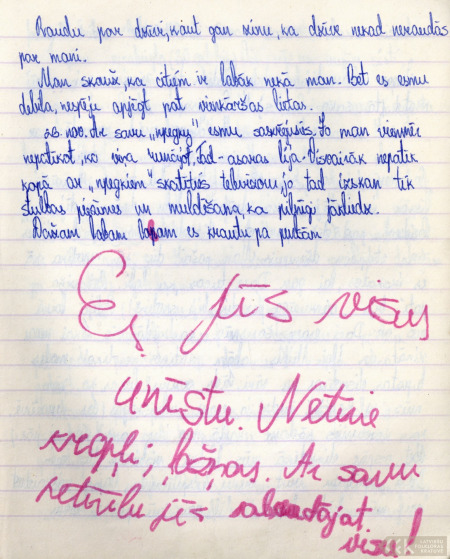 Raudu par dzīvi, kaut gan zinu, ka dzīve nekad neraudās
par mani.
Man skauž, ka citiem ir labāk nekā man. Bet es esmu
debila, nespēju apjēgt pat vienkāršas lietas.
28. nov. Ar savu „nēģeri" esmu sastrīdējusies. Jo man vienmēr
nepatīkot, ko viņa runājot. Tad asaras lija. Visvairāk nepatīk
kopā ar „nēģeriem" skatīties televizoru, jo tad izskan tik
stulbas piezīmes un muldēšana, ka pilnīgi jāaiziet.
Dažam labam es krautu pa purnam
Ei jūs visus
iznīstu. Netīrie
kropļi, ļošņas. Ar savu
netīrību jūs sabendējat
visu!
LATVIEŠU
FOLKLORAS
KRĀTUVE